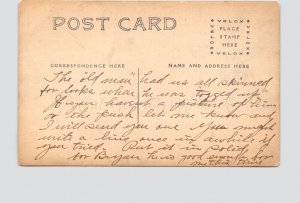 POST CARD
VELOX
PLACE
STAMP
HERE
VELOX
CORRESPONDENCE HERE
NAME AND ADDRESS HERE
The old man "had us all skinned
for looks when he was "togged up"
If you havent a picture of him
on the push let me know and
I will send you one You might
write a line once in awhile if
you tried. Put it in solid
for Bryan he is good enough for
me this time